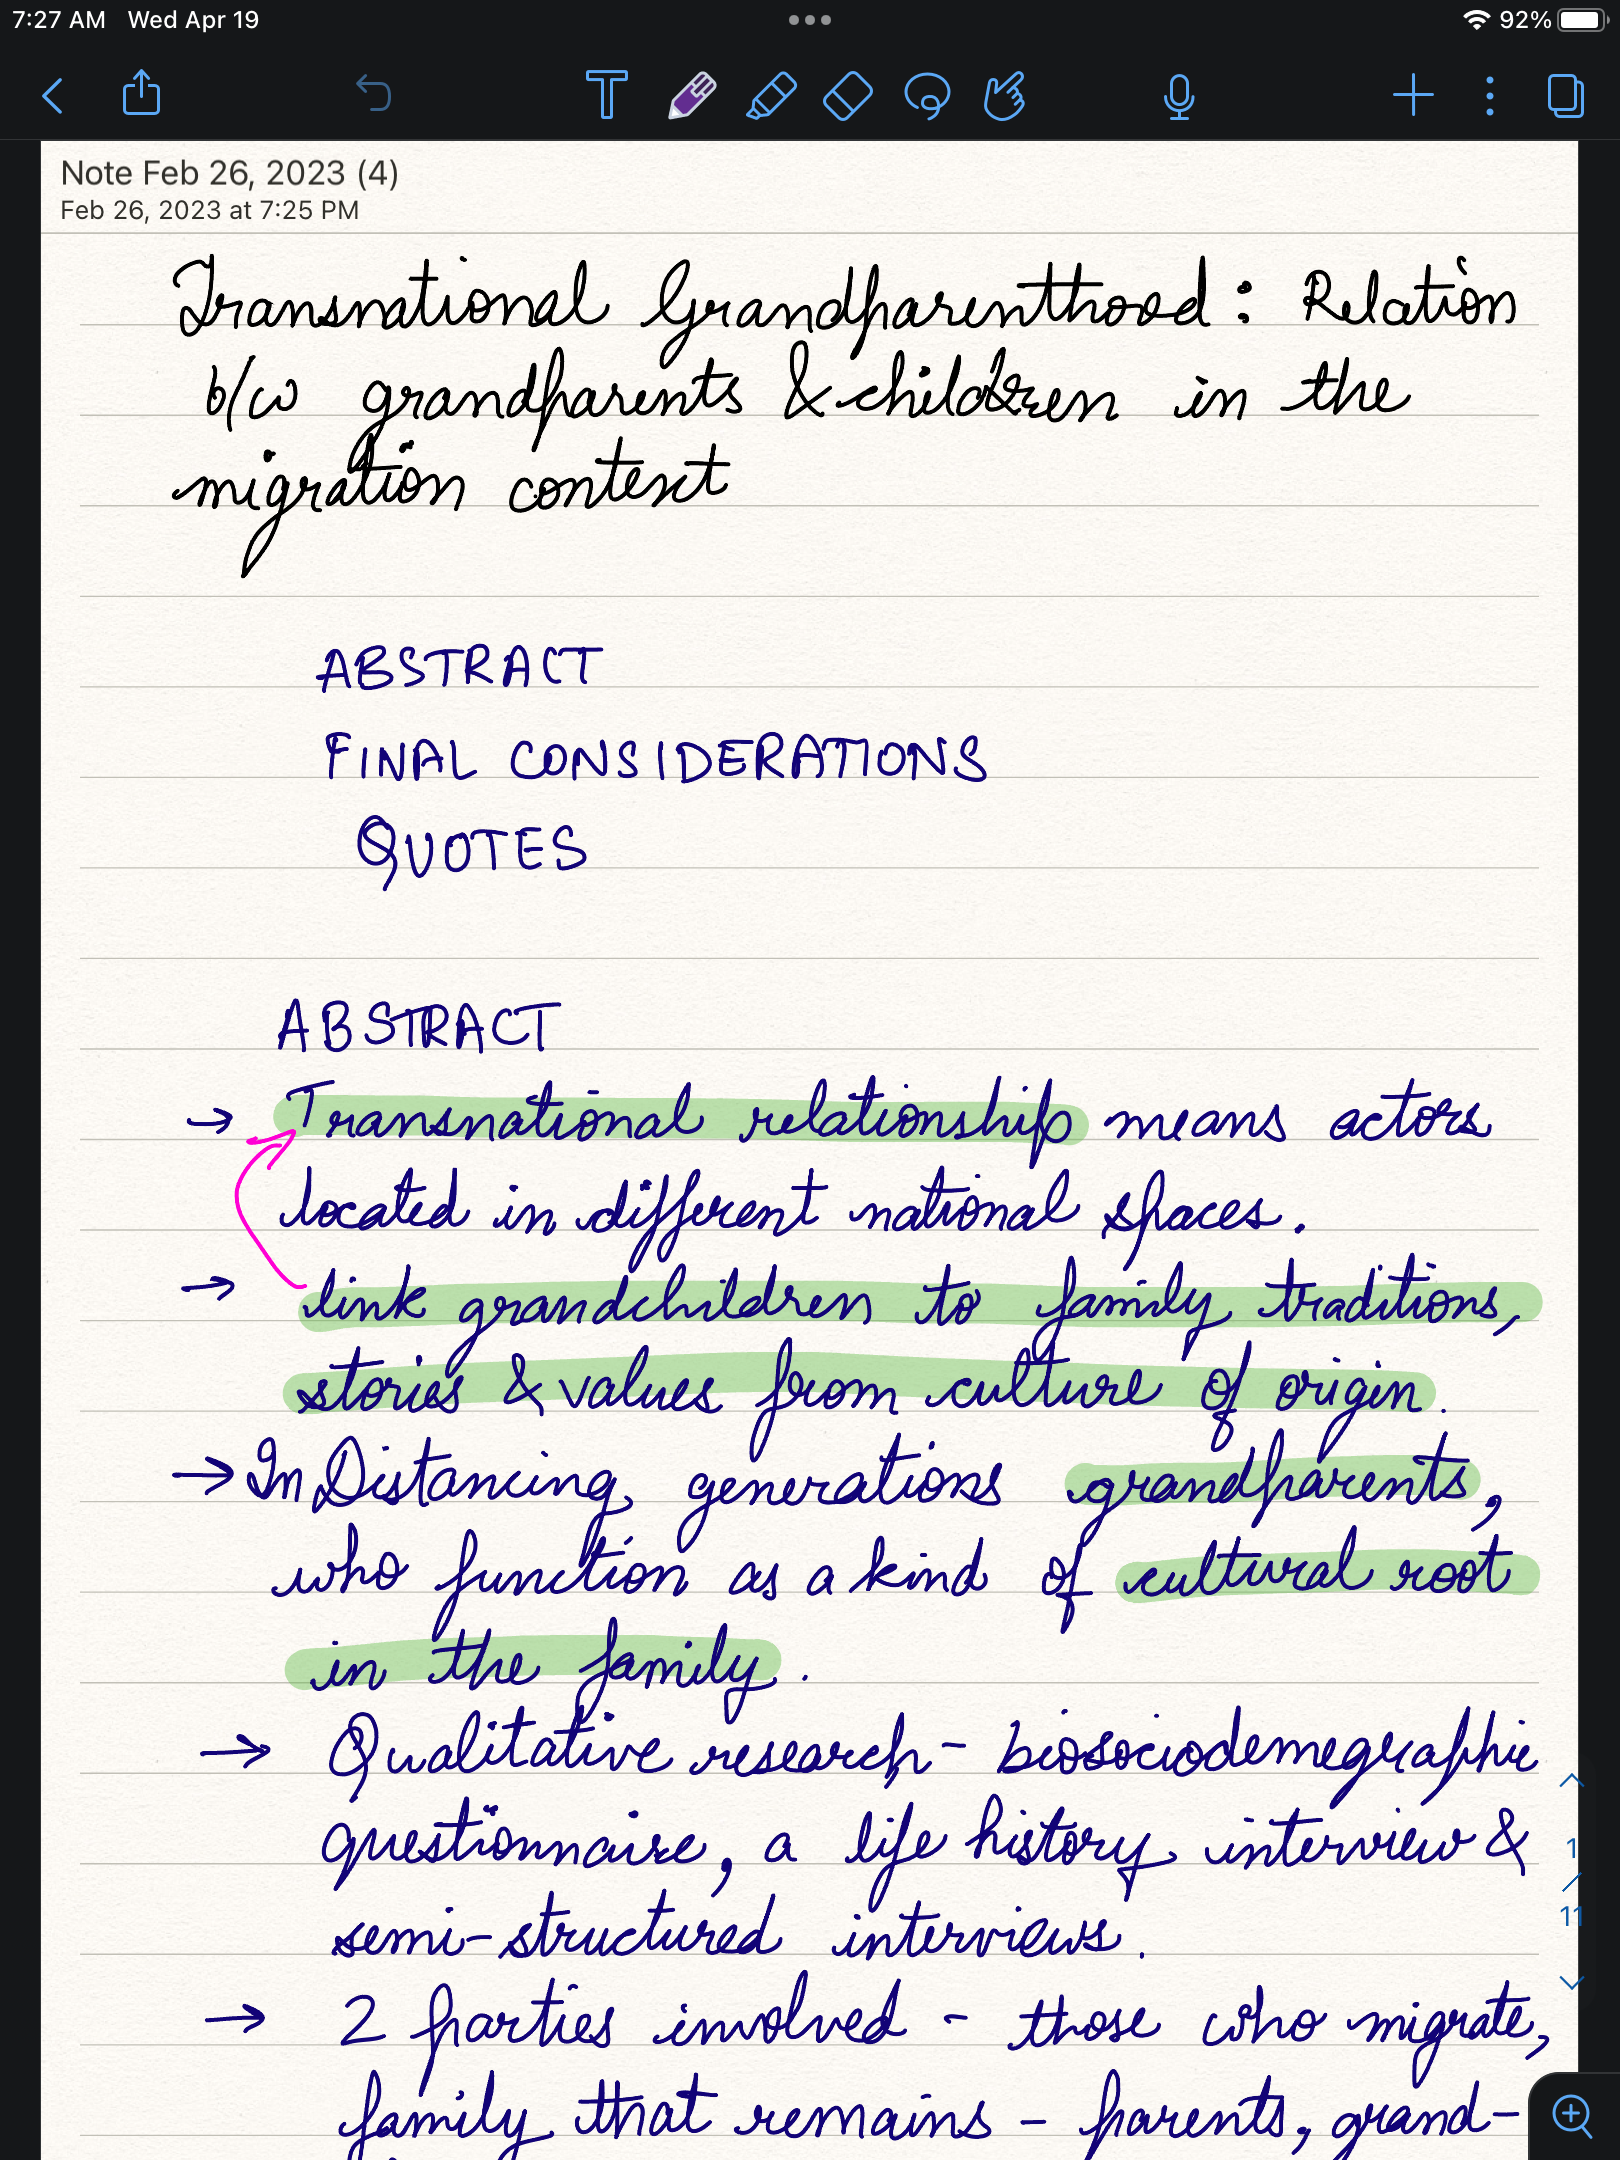 7:27 AM Wed Apr 19 92%
Note Feb 26, 2023 (4)
Feb 26, 2023 at 7:25 PM
Transnational Grandparenthood: Relation
b/w grandparents & children in the
migration context
ABSTRACT
FINAL CONSIDERATIONS
QUOTES
ABSTRACT
→ Transnational relationship means actors
located in different national spaces.
→ link grandchildren to family traditions,
stories & values from culture of origin.
→ In Distancing generations grandparents,
who function as a kind of cultural root
in the family.
→ Qualitative research - biosociodemegraphic
questionnaire, a life history interview &
semi-structured interviews.
→ 2 parties involved - those who migrate,
family that remains - parents, grand-
1
/
11